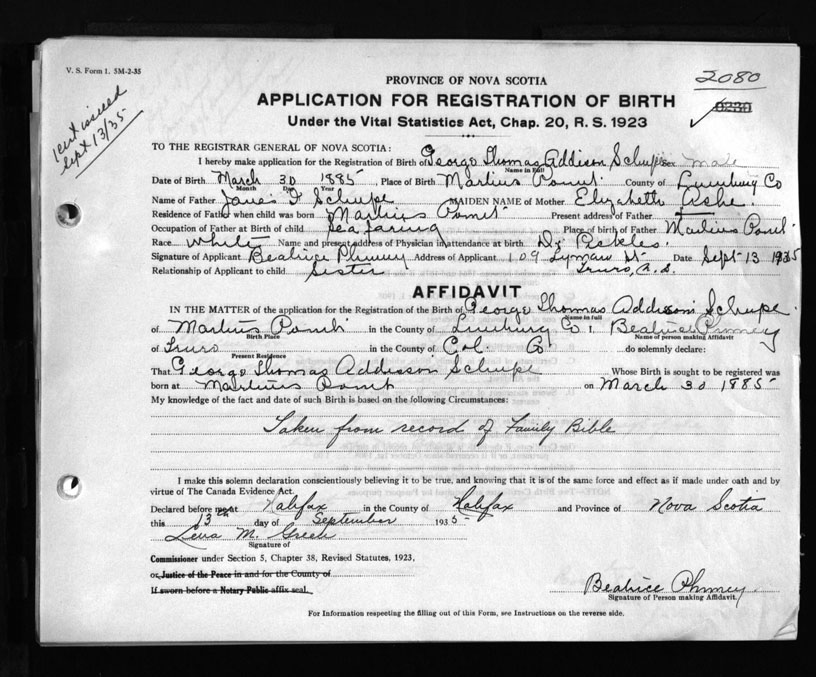 V. S. Form 1. 5M-2-35
2080
0230
PROVINCE OF NOVA SCOTIA
APPLICATION FOR REGISTRATION OF BIRTH
Under the Vital Statistics Act, Chap. 20, R. S. 1923
issued
Sept 13/35
TO THE REGISTRAR GENERAL OF NOVA SCOTIA:
I hereby make application for the Registration of Birth of George Thomas Addison Schupe Sex male
Name in Full
Date of Birth March 30 1885, Place of Birth Martins Point County of Lunburg Co
Month Day Year
Name of Father James Schupe MAIDEN NAME of Mother Elizabeth Ashe
Residence of Father when child was born Martins Point Present address of Father
Occupation of Father at Birth of child Sea faring Place of birth of Father Martins Point
Race white Name and present address of Physician in attendance at birth Dr
Signature of Applicant Beatrice Phinney Address of Applicant 109 Lyman St Date Sept 13 1935
Relationship of Applicant to child Sister Truro, N.S.
AFFIDAVIT
IN THE MATTER of the application for the Registration of the Birth of George Thomas Addison Schupe
Name in Full
of Martins Point in the County of Lunburg Co I Beatrice Phinney
Birth Place Name of person making Affidavit
of Truro in the County of Col. Co do solemnly declare:
Present Residence
That George Thomas Addison Schupe Whose Birth is sought to be registered was
born at Martins Point on March 30 1885
My knowledge of the fact and date of such Birth is based on the following Circumstances:
Taken from record of Family Bible
I make this solemn declaration conscientiously believing it to be true, and knowing that it is of the same force and effect as if made under oath and by
virtue of The Canada Evidence Act.
Declared before me at Halifax in the County of Halifax and Province of Nova Scotia
this 13th day of September 1935
Lena M. Green
Signature of
Commissioner under Section 5, Chapter 38, Revised Statutes, 1923,
or Justice of the Peace in and for the County of
If sworn before a Notary Public affix seal.
Beatrice Phinney.
Signature of Person making Affidavit.
For Information respecting the filling out of this Form, see Instructions on the reverse side.